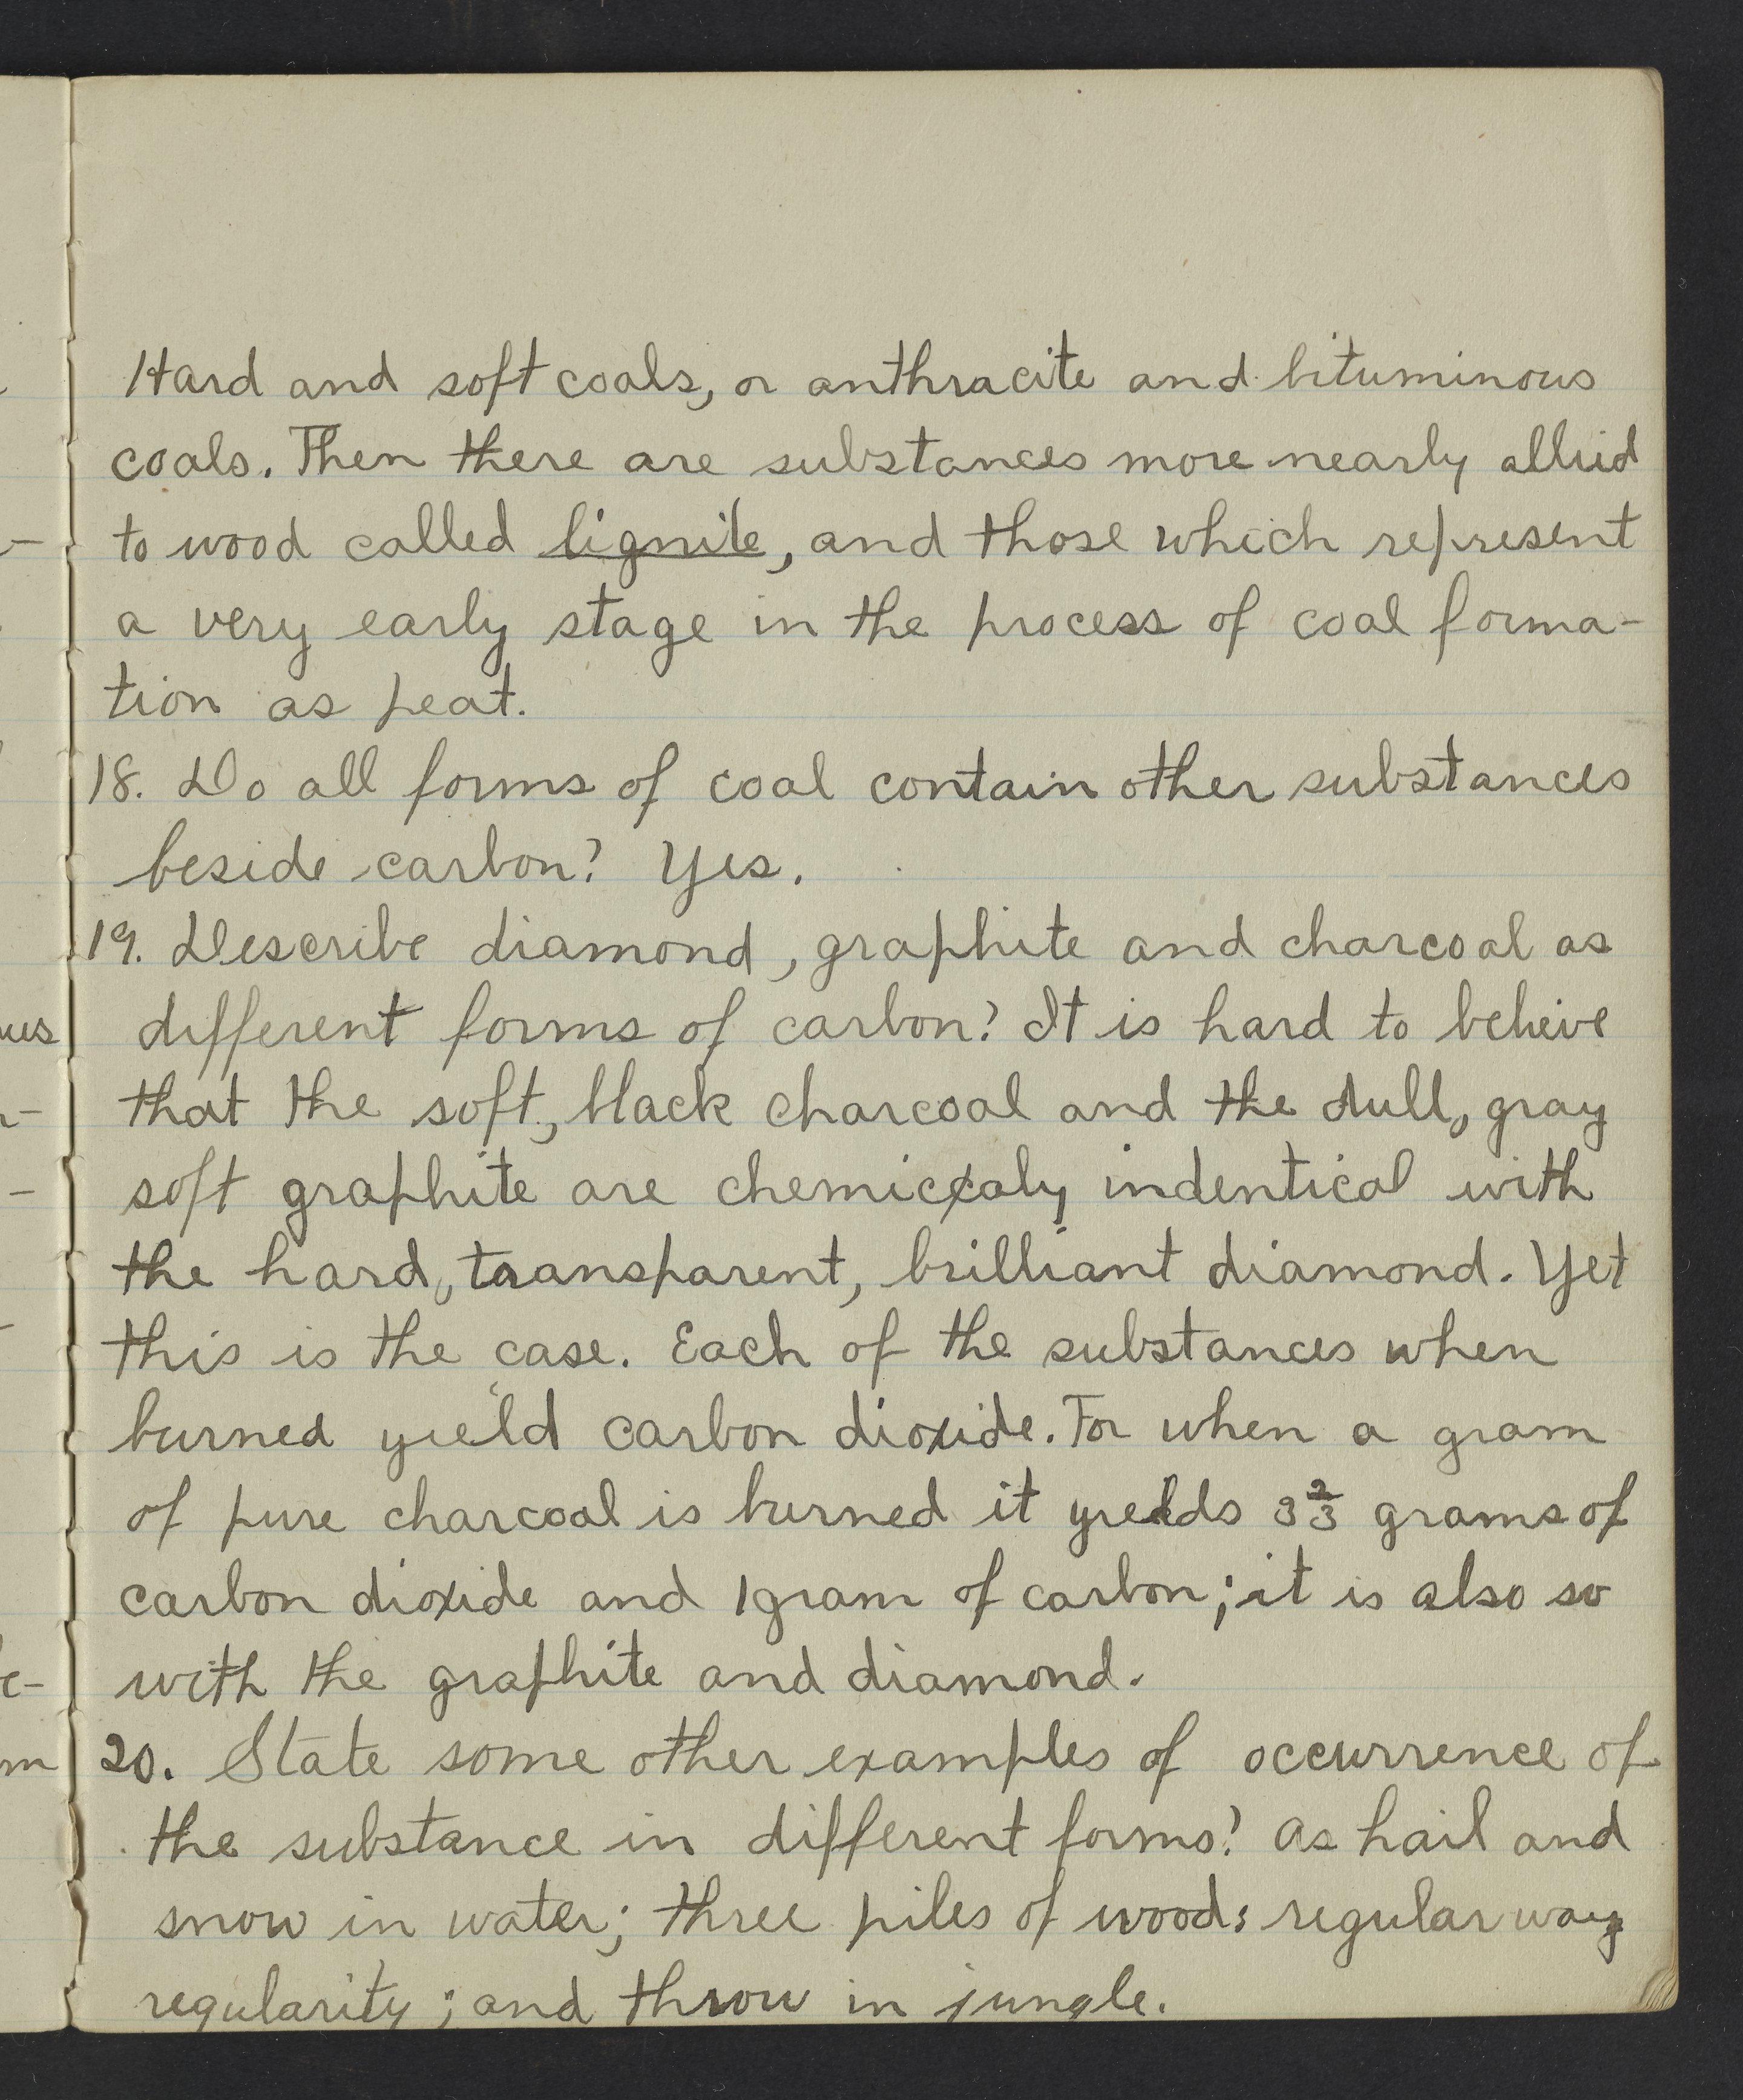 Hard and soft coals, or anthracite and bituminous
coals. Then there are substances more nearly allied
to wood called lignite, and those which represent
a very early stage in the process of coal forma-
tion as peat.
18. Do all forms of coal contain other substances
beside carbon? Yes.
19. Describe diamond, graphite and charcoal as
different forms of carbon? It is hard to believe
that the soft, black charcoal and the dull, gray
soft graphite are chemicaly indentical with
the hard, transparent, brilliant diamond. Yet
this is the case. Each of the substances when
burned yield carbon dioxide. For when a gram
of pure charcoal is burned it yields 3 2/3 grams of
carbon dioxide and 1 gram of carbon; it is also so
with the graphite and diamond.
20. State some other examples of occurrence of
the substance in different forms? As hail and
snow in water; three piles of wood: regular way
regularity; and throw in jungle.